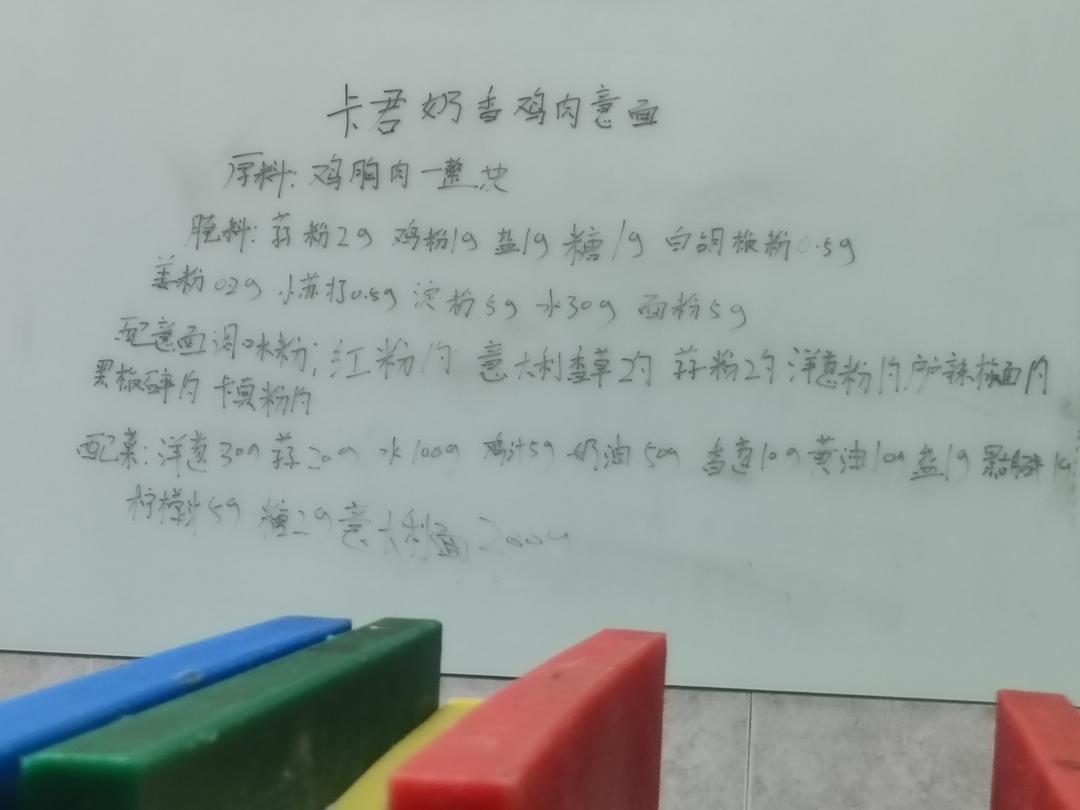 卡君奶香鸡肉意面
原料: 鸡胸肉一整块
腌料: 蒜粉2g 鸡粉1g 盐1g 糖1g 白胡椒粉0.5g
姜粉0.2g 小苏打0.5g 淀粉5g 水30g 面粉5g
配意面调味粉: 红粉1g 意大利香草2g 蒜粉2g 洋葱粉1g 辣椒面1g
黑椒碎1g 卡真粉1g
配菜: 洋葱30g 蒜20g 水100g 鸡汁5g 奶油50g 香葱10g 黄油10g 盐1g 1g
柠檬汁5g 糖2g 意大利面200g